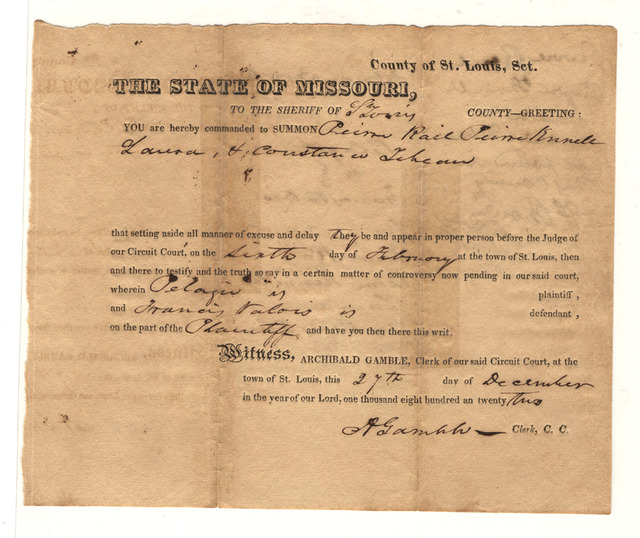 County of St. Louis, Sct.
THE STATE OF MISSOURI,
TO THE SHERIFF OF St Louis COUNTY—GREETING:
YOU are hereby commanded to SUMMON Peirre Pierre
Laura, & Constance
that setting aside all manner of excuse and delay they be and appear in proper person before the Judge of
our Circuit Court, on the sixth day of February at the town of St. Louis, then
and there to testify and the truth so say in a certain matter of controversy now pending in our said court,
wherein Pelagie is plaintiff,
and Francis Valois is defendant,
on the part of the Plaintiff and have you then there this writ.
Witness, ARCHIBALD GAMBLE, Clerk of our said Circuit Court, at the
town of St. Louis, this 27th day of December
in the year of our Lord, one thousand eight hundred an twenty two
A Gamble Clerk, C. C.